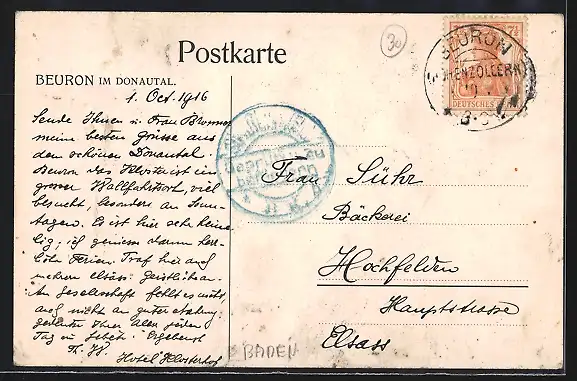 Postkarte
BEURON IM DONAUTAL.
1. Oct. 1916
Sende Ihnen u. Frau
meine besten Grüsse aus
dem schönen Donautal.
Beuron das Kloster ist ein
grosser Wallfahrtsort, viel
besucht, besonders an Sonn-
tagen. Es ist hier sehr heime-
lig; ich geniesse darum herr-
liche Ferien. Traf hier auch
mehrere elsäss. Geistliche.
An Gesellschaft fehlt es nicht,
auch nicht an guter
Ihrer Aller jeden
Tag
Th. W.
Hotel Klosterhof
30
7½
DEUTSCHES REICH
BEURON
(HOHENZOLLERN)
Frau Sühr
Bäckerei
Hochfelden
Hauptstrasse
Elsass
BADEN